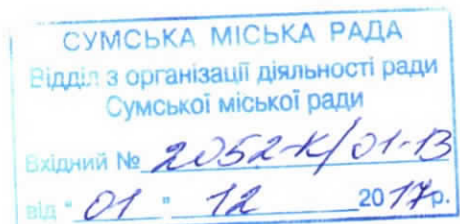 СУМСЬКА МІСЬКА РАДА
Відділ з організації діяльності ради
Сумської міської ради
Вхідний № 2052-К/01-13
від "01" 12 2017р.